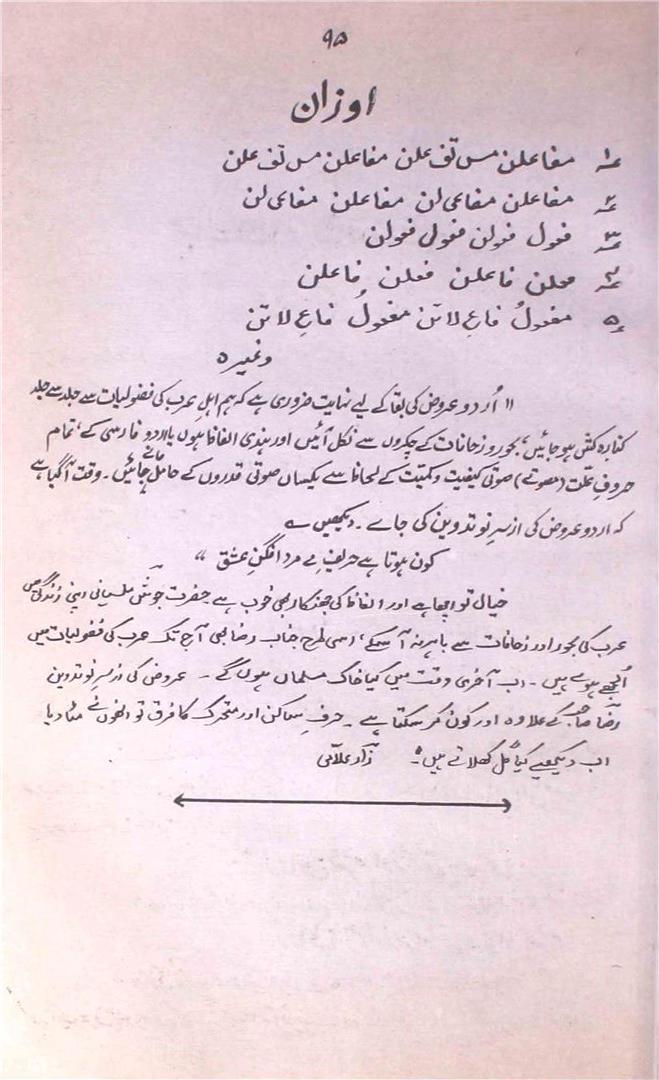 ۹۵
اوزان
۱؎ مفاعلن مس تف علن مفاعلن مس تف علن
۲؎ مفاعلن مفاعی لن مفاعلن مفاعی لن
۳؎ فعول فعولن فعول فعولن
۴؎ فعلن فاعلن فعلن فاعلن
۵؎ مفعولُ فاعِ لاتن مفعولُ فاعِ لاتن
وغیرہ
" اُردو عروض کی بقا کے لیے نہایت ضروری ہے کہ ہم اہلِ عرب کی فضولیات سے جلد سے جلد
کنارہ کش ہو جائیں، بحور و زحافات کے چکروں سے نکل آئیں اور ہندی الفاظ ہوں یا اردو فارسی کے، تمام
حروفِ علّت (مصوتے) صوتی کیفیت و کمیّت کے لحاظ سے یکساں صوتی قدروں کے حامل مانے جائیں۔ وقت آ گیا ہے
کہ اردو عروض کی از سرِ نو تدوین کی جاے۔ دیکھیں ؎
کون ہوتا ہے حریفِ مے مرد افگنِ عشق "
خیال تو اچھا ہے اور الفاظ کی جھنکار بھی خوب ہے۔ حضرت جوشؔ ملسیانی اپنی زندگی میں
عرب کی بحور اور زحافات سے باہر نہ آ سکے، اسی طرح جناب رضا بھی آج تک عرب کی فضولیات میں
اُلجھے ہوے ہیں۔ اب آخری وقت میں کیا خاک مسلماں ہوں گے۔ عروض کی از سرِ نو تدوین
رضا صاحب کے علاوہ اور کون کر سکتا ہے۔ حرفِ ساکن اور متحرک کا فرق تو انھوں نے مٹا دیا
اب دیکھیے کیا گُل کھلاتے ہیں۔ زار علّامی